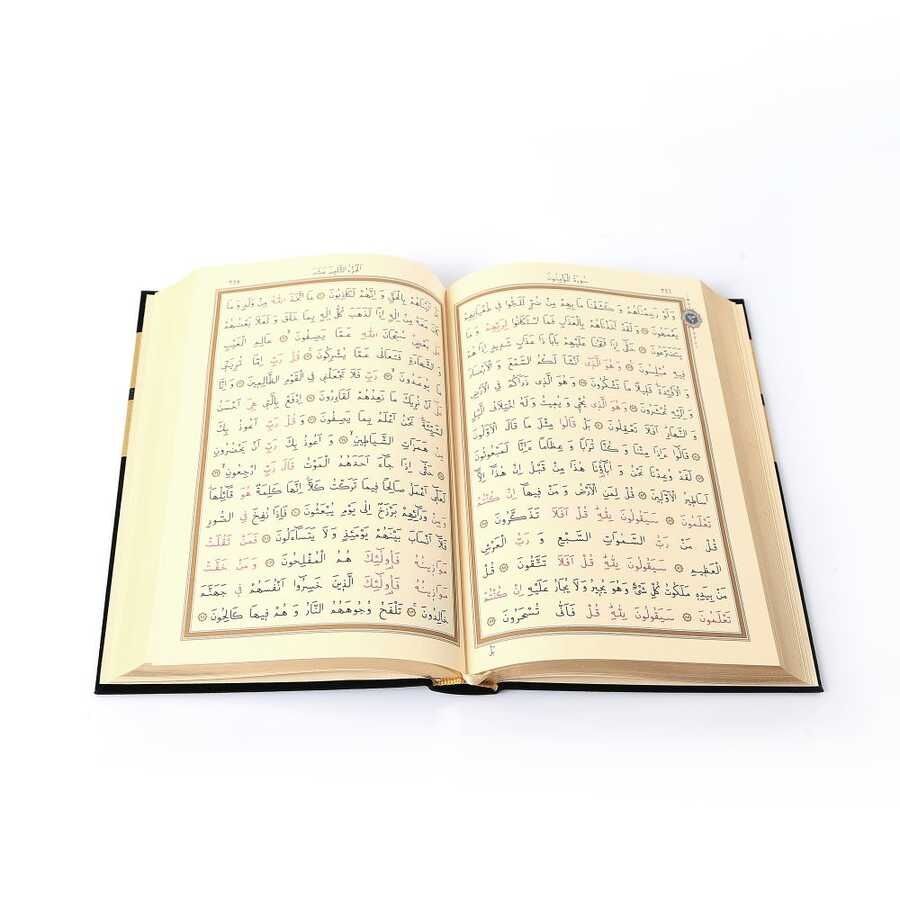 سُورَةُ الْمُؤْمِنُونَ ٣٤٦
وَلَوْ رَحِمْنَاهُمْ وَكَشَفْنَا مَا بِهِمْ مِنْ ضُرٍّ لَلَجُّوا فِي طُغْيَانِهِمْ
يَعْمَهُونَ وَلَقَدْ اَخَذْنَاهُمْ بِالْعَذَابِ فَمَا اسْتَكَانُوا لِرَبِّهِمْ وَمَا
يَتَضَرَّعُونَ حَتّٰٓى اِذَا فَتَحْنَا عَلَيْهِمْ بَابًا ذَا عَذَابٍ شَدِيدٍ اِذَا هُمْ
فِيهِ مُبْلِسُونَ وَهُوَ الَّذِي اَنْشَاَ لَكُمُ السَّمْعَ وَالْاَبْصَارَ
وَالْاَفْئِدَةَ قَلِيلًا مَا تَشْكُرُونَ وَهُوَ الَّذِي ذَرَاَكُمْ فِي الْاَرْضِ
وَاِلَيْهِ تُحْشَرُونَ وَهُوَ الَّذِي يُحْيِي وَيُمِيتُ وَلَهُ اخْتِلَافُ الَّيْلِ
وَالنَّهَارِ اَفَلَا تَعْقِلُونَ بَلْ قَالُوا مِثْلَ مَا قَالَ الْاَوَّلُونَ
قَالُٓوا ءَاِذَا مِتْنَا وَكُنَّا تُرَابًا وَعِظَامًا ءَاِنَّا لَمَبْعُوثُونَ
لَقَدْ وُعِدْنَا نَحْنُ وَاٰبَٓاؤُنَا هٰذَا مِنْ قَبْلُ اِنْ هٰذَٓا اِلَّٓا
اَسَاطِيرُ الْاَوَّلِينَ قُلْ لِمَنِ الْاَرْضُ وَمَنْ فِيهَٓا اِنْ كُنْتُمْ
تَعْلَمُونَ سَيَقُولُونَ لِلّٰهِ قُلْ اَفَلَا تَذَكَّرُونَ
قُلْ مَنْ رَبُّ السَّمٰوَاتِ السَّبْعِ وَرَبُّ الْعَرْشِ
الْعَظِيمِ سَيَقُولُونَ لِلّٰهِ قُلْ اَفَلَا تَتَّقُونَ قُلْ
مَنْ بِيَدِهِ مَلَكُوتُ كُلِّ شَيْءٍ وَهُوَ يُجِيرُ وَلَا يُجَارُ عَلَيْهِ اِنْ كُنْتُمْ
تَعْلَمُونَ سَيَقُولُونَ لِلّٰهِ قُلْ فَاَنّٰى تُسْحَرُونَ
بَلْ
اَلْجُزْءُ الثَّامِنَ عَشَرَ
بَلْ اَتَيْنَاهُمْ بِالْحَقِّ وَاِنَّهُمْ لَكَاذِبُونَ مَا اتَّخَذَ اللّٰهُ مِنْ وَلَدٍ وَمَا
كَانَ مَعَهُ مِنْ اِلٰهٍ اِذًا لَذَهَبَ كُلُّ اِلٰهٍ بِمَا خَلَقَ وَلَعَلَا بَعْضُهُمْ
عَلٰى بَعْضٍ سُبْحَانَ اللّٰهِ عَمَّا يَصِفُونَ عَالِمِ الْغَيْبِ
وَالشَّهَادَةِ فَتَعَالٰى عَمَّا يُشْرِكُونَ قُلْ رَبِّ اِمَّا تُرِيَنِّي
مَا يُوعَدُونَ رَبِّ فَلَا تَجْعَلْنِي فِي الْقَوْمِ الظَّالِمِينَ وَاِنَّا
عَلٰٓى اَنْ نُرِيَكَ مَا نَعِدُهُمْ لَقَادِرُونَ اِدْفَعْ بِالَّتِي هِيَ اَحْسَنُ
السَّيِّئَةَ نَحْنُ اَعْلَمُ بِمَا يَصِفُونَ وَقُلْ رَبِّ اَعُوذُ بِكَ
مِنْ هَمَزَاتِ الشَّيَاطِينِ وَاَعُوذُ بِكَ رَبِّ اَنْ يَحْضُرُونِ
حَتّٰٓى اِذَا جَٓاءَ اَحَدَهُمُ الْمَوْتُ قَالَ رَبِّ ارْجِعُونِ
لَعَلِّٓي اَعْمَلُ صَالِحًا فِيمَا تَرَكْتُ كَلَّا اِنَّهَا كَلِمَةٌ هُوَ قَٓائِلُهَا
وَمِنْ وَرَٓائِهِمْ بَرْزَخٌ اِلٰى يَوْمِ يُبْعَثُونَ فَاِذَا نُفِخَ فِي الصُّورِ
فَلَٓا اَنْسَابَ بَيْنَهُمْ يَوْمَئِذٍ وَلَا يَتَسَٓاءَلُونَ فَمَنْ ثَقُلَتْ
مَوَازِينُهُ فَاُولٰٓئِكَ هُمُ الْمُفْلِحُونَ وَمَنْ خَفَّتْ
مَوَازِينُهُ فَاُولٰٓئِكَ الَّذِينَ خَسِرُٓوا اَنْفُسَهُمْ فِي جَهَنَّمَ
خَالِدُونَ تَلْفَحُ وُجُوهَهُمُ النَّارُ وَهُمْ فِيهَا كَالِحُونَ